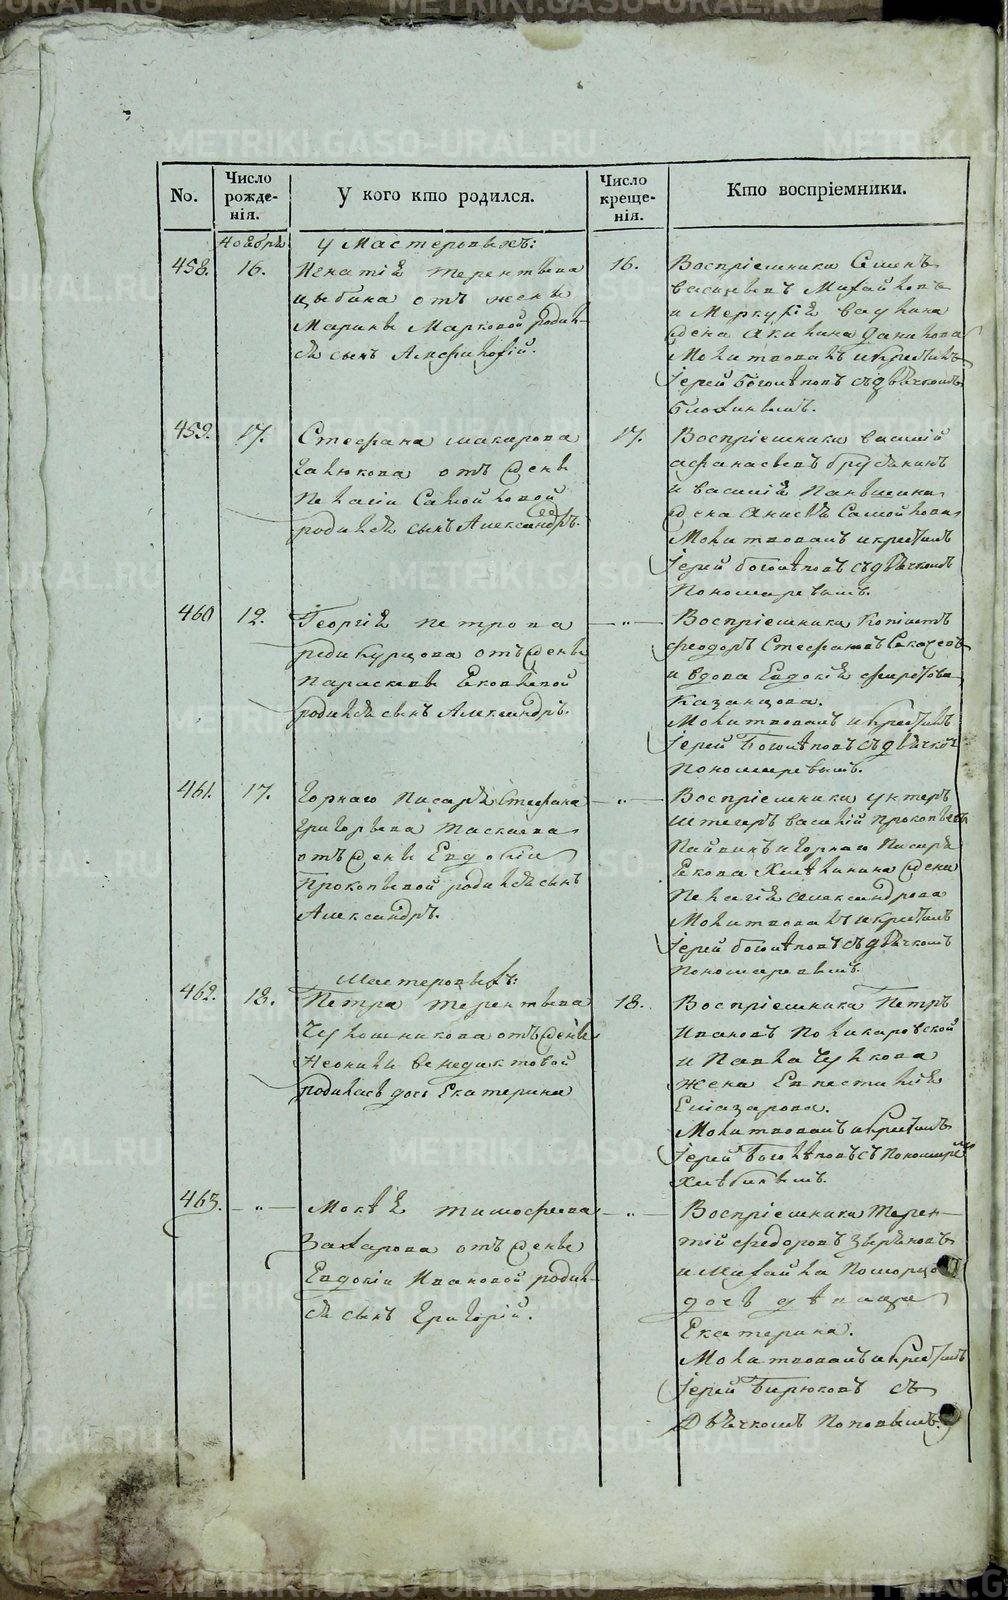 METRIKI.GASO-URAL.RU
No.
Число рожде-
нія.
У кого кто родился.
Число креще-
нія.
Кто воспріемники.
Ноября
У Мастеровыхъ:
458.
16.
Игнатія Терентьева
Цыбина отъ жены
Марины Марковой родил-
ся сынъ Амфилохій.
16.
Воспріемники Семенъ
Васильевъ Михайловъ
и Меркурій
жена Акилина Данилова
Молитвовалъ и крестилъ
Іерей Боголѣповъ съ дьячкомъ
459.
17.
Стефана Макарова
отъ жены
Пелагіи Самойловой
родился сынъ Александръ.
17.
Воспріемники Василій
Афанасьевъ
и Василій Паньшина
жена Анисья Самойлова
Молитвовалъ и крестилъ
Іерей Боголѣповъ съ дьячкомъ
Пономаревымъ.
460
12.
Георгія Петрова
Редикурцова отъ жены
Параскевы Яковлевой
родился сынъ Александръ.
— „ —
Воспріемники
Феодоръ Стефановъ
и вдова Евдокія
Казанцова.
Молитвовалъ и крестилъ
Іерей Боголѣповъ съ дьячкомъ
Пономаревымъ.
461.
17.
Горнаго Писаря Стефана
Григорьева Таскаева
отъ жены Евдокіи
Прокопьевой родился сынъ
Александръ.
— „ —
Воспріемники унтеръ
штегеръ Василій Прокопьевъ
и горнаго Писаря
Якова Хлѣбинина жена
Пелагія Александрова
Молитвовалъ и крестилъ
Іерей Боголѣповъ съ дьячкомъ
Пономаревымъ.
Мастеровыхъ:
462.
18.
Петра Терентьева
отъ жены
Неонилы Венедиктовой
родилась дочь Екатерина
18.
Воспріемники Петръ
Ивановъ Поликаровской
и Павла Чулкова
жена Евпестилія
Елиазарова.
Молитвовалъ и крестилъ
Іерей Боголѣповъ съ пономаремъ
463.
— „ —
Мокѣя Тимофеева
Захарова отъ жены
Евдокіи Ивановой родил-
ся сынъ Григорій.
— „ —
Воспріемники Терен-
тій Федоровъ Зыряновъ
и Михайла
дочь дѣвица
Екатерина.
Молитвовалъ и крестилъ
Іерей Бирюковъ съ
Дьячкомъ Поповымъ.